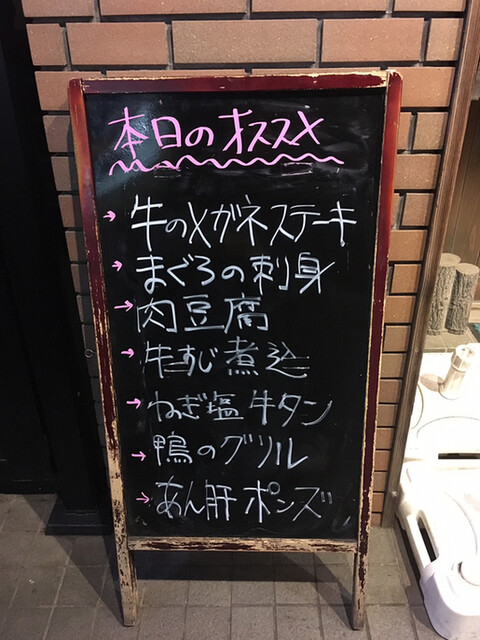 本日のオススメ
→ 牛のメガネステーキ
→ まぐろの刺身
→ 肉豆腐
→ 牛すじ煮込
→ ねぎ塩牛タン
→ 鴨のグリル
→ あん肝ポンズ